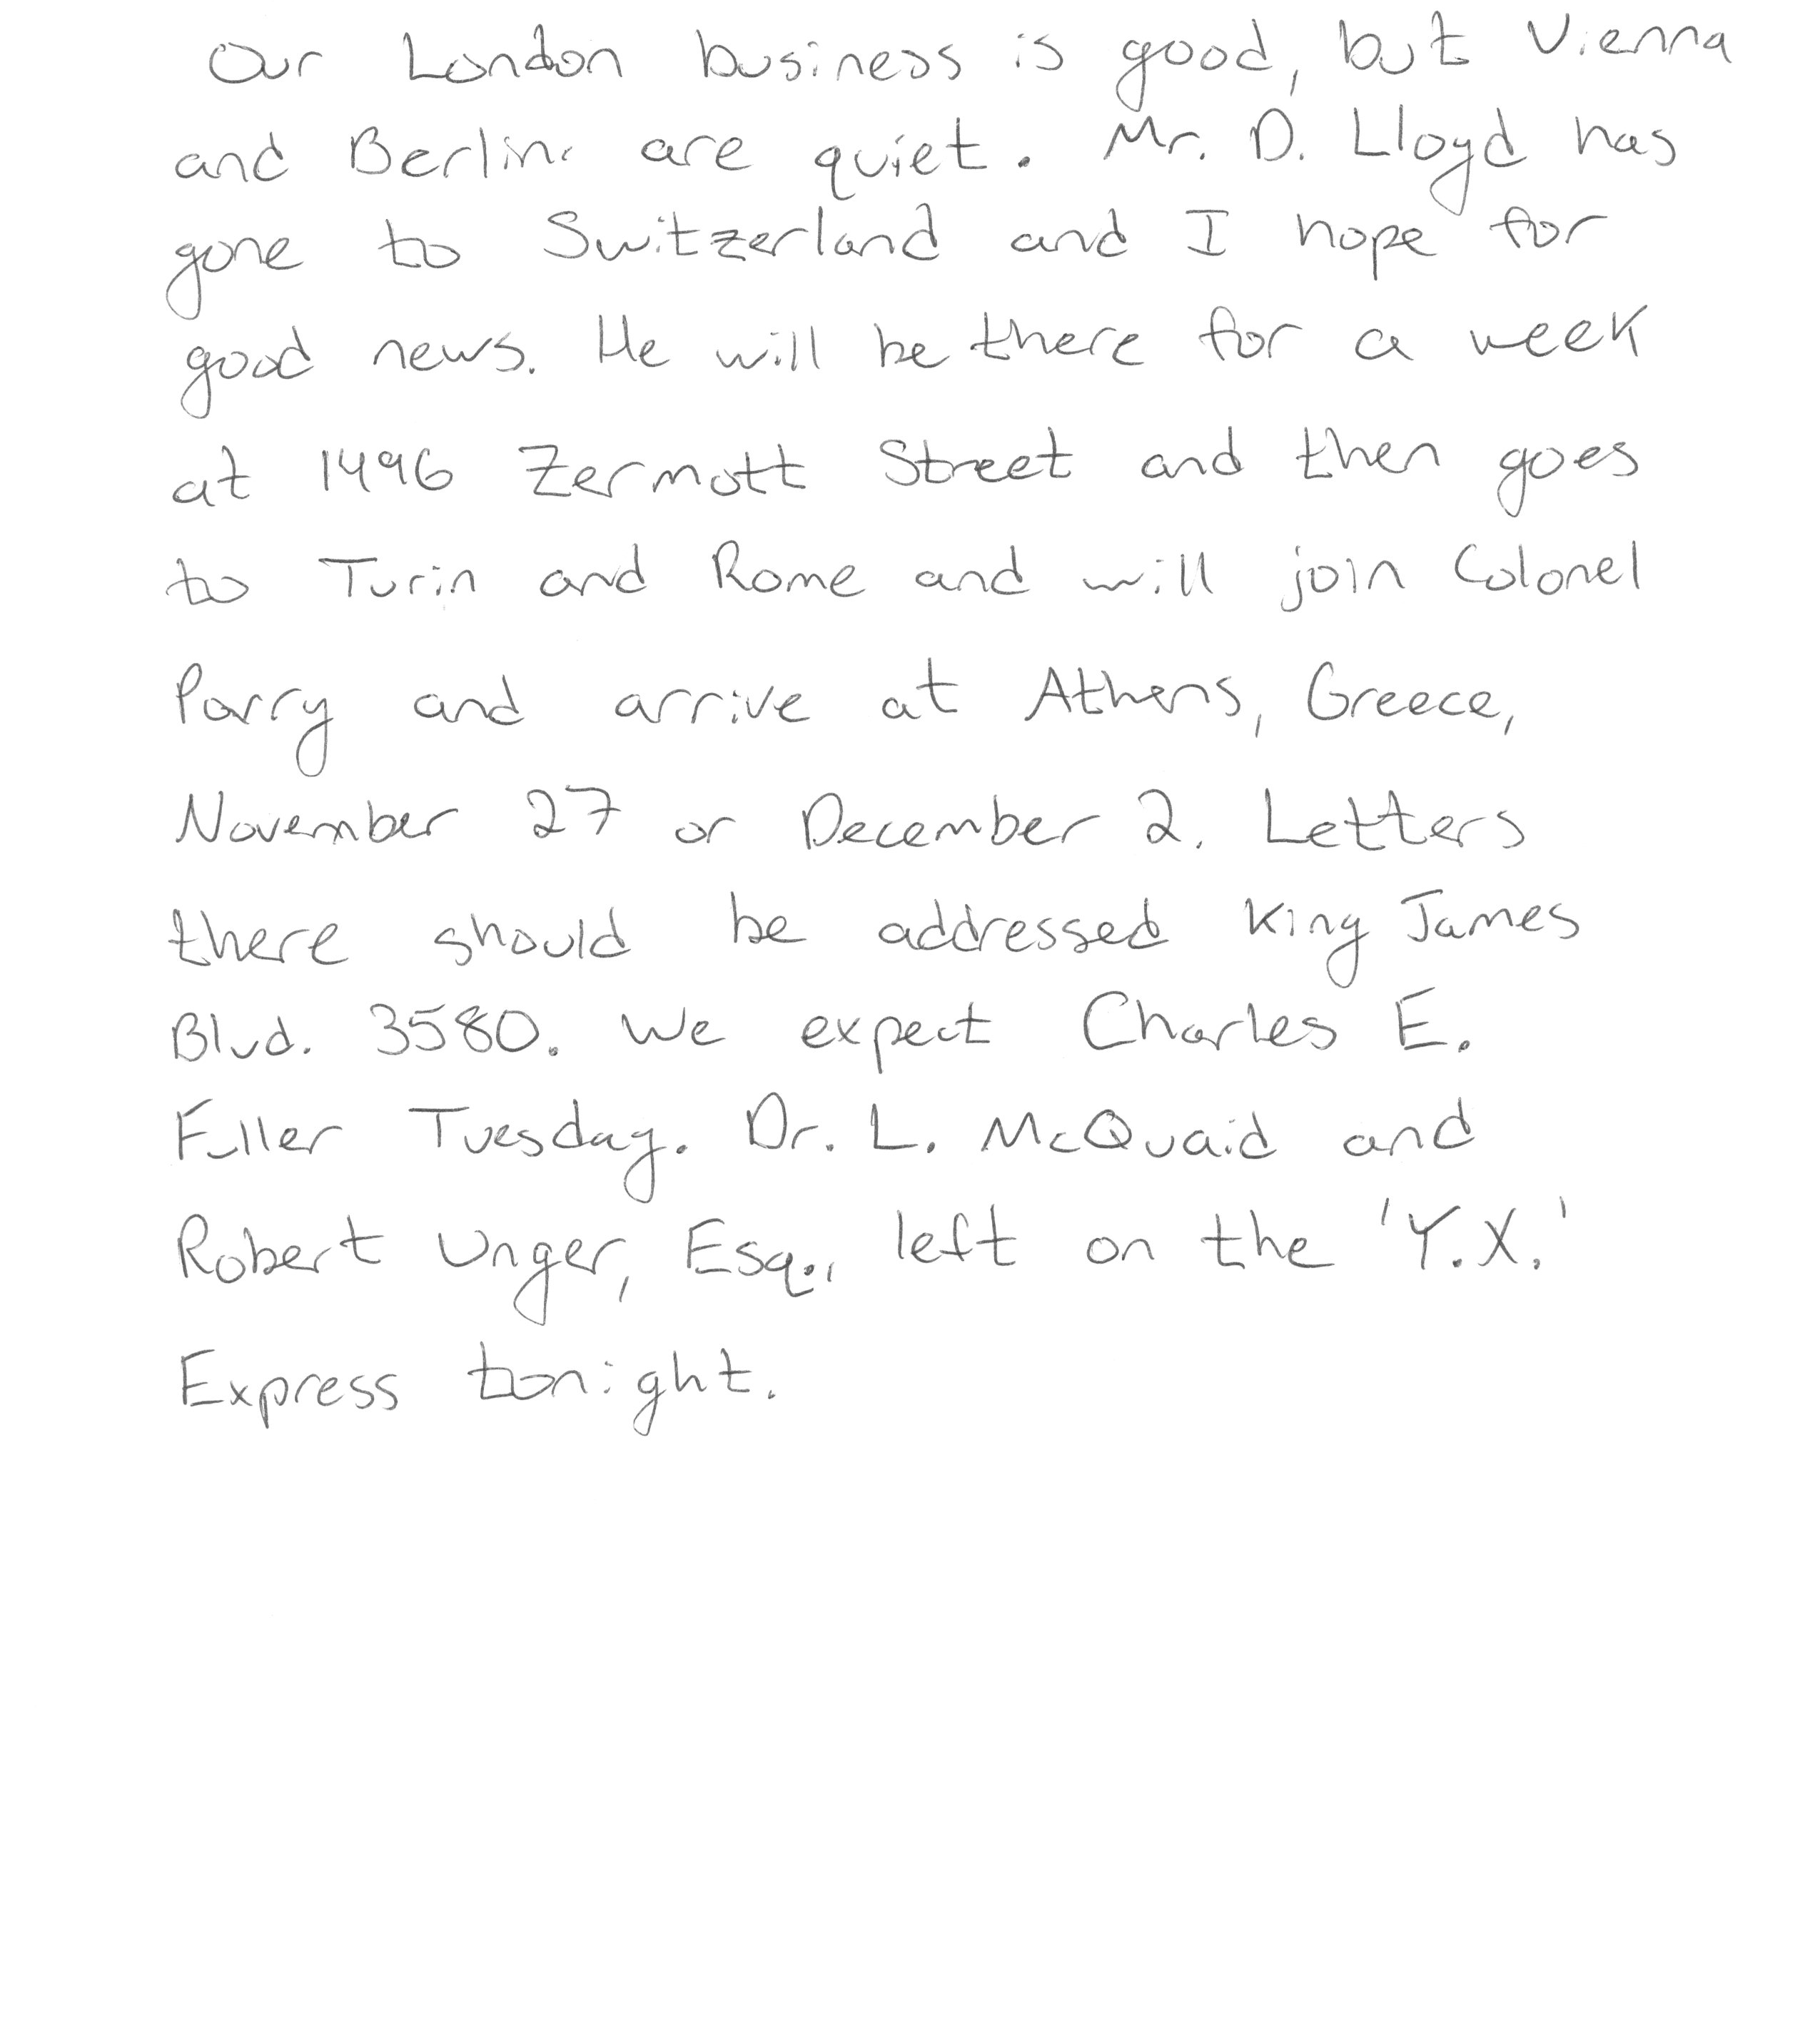 Our London business is good, but Vienna
and Berlin are quiet. Mr. D. Lloyd has
gone to Switzerland and I hope for
good news. He will be there for a week
at 1496 Zermott Street and then goes
to Turin and Rome and will join Colonel
Parry and arrive at Athens, Greece,
November 27 or December 2. Letters
there should be addressed King James
Blvd. 3580. We expect Charles E.
Fuller Tuesday. Dr. L. McQuaid and
Robert Unger, Esq., left on the 'Y.X.'
Express tonight.